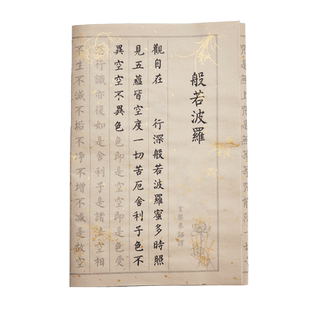 般若波羅
觀自在 行深般若波羅蜜多時照
見五蘊皆空度一切苦厄舍利子色不
異空空不異色色即是空空即是色受
想行識亦復如是舍利子是諸法空相
不生不滅不垢不淨不增不減是故空